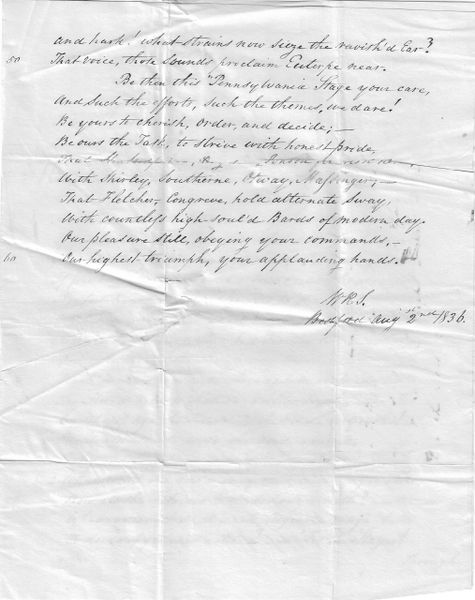 and hark! what strains now seize the ravish'd Ear?
50 That voice, those Sounds proclaim Euterpe near.
Be then this "Pennsylvania Stage your care,
And Such the efforts, Such the themes, we dare!
Be yours to cherish, Order, and decide; —
Be ours the Task, to strive with honest pride,
That
With Shirley, Southerne, Otway, Massinger, —
That Fletcher, Congreve, hold alternate Sway,
With countless high-soul'd Bards of modern day.
Our pleasure Still, obeying your commands, —
60 Our highest triumph, your applauding hands.
W.R.S.
Aug 2nd 1836.